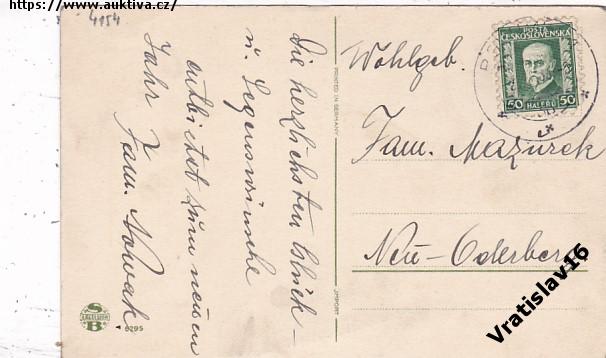 https://www.auktiva.cz/
4154
Die herzlichsten Glück-
u. Segenswünsche
entbietet zum neuen
Jahr Fam. Nowak
PRINTED IN GERMANY
IMPORT
S
B
6295
Wohlgeb.
Fam. Mazurek
Neu-Oderberg
POŠTA
ČESKOSLOVENSKÁ
50 HALÉŘŮ 50
Vratislav16